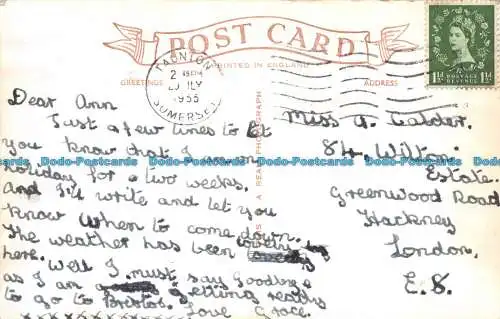 POST CARD
PRINTED IN ENGLAND
GREETINGS
ADDRESS
TAUNTON
1955
SOMERSET
POSTAGE REVENUE
1½D 1½D
Dear Ann
Just a few lines to let
you know that I am on
holiday for a two weeks.
And I'll write and let you
know when to come down.
The weather has been lovely
here. Well I must say Goodbye
as I am getting ready
to go to Bristol. Love Grace.
xxxxxxxxx
Miss A. Calder.
84, Wilton
Estate.
Greenwood Road
Hackney
London.
E.8.
IS A REAL PHOTOGRAPH
Dodo-Postcards Dodo-Postcards Dodo-Postcards Dodo-Postcards Dodo-Postcards